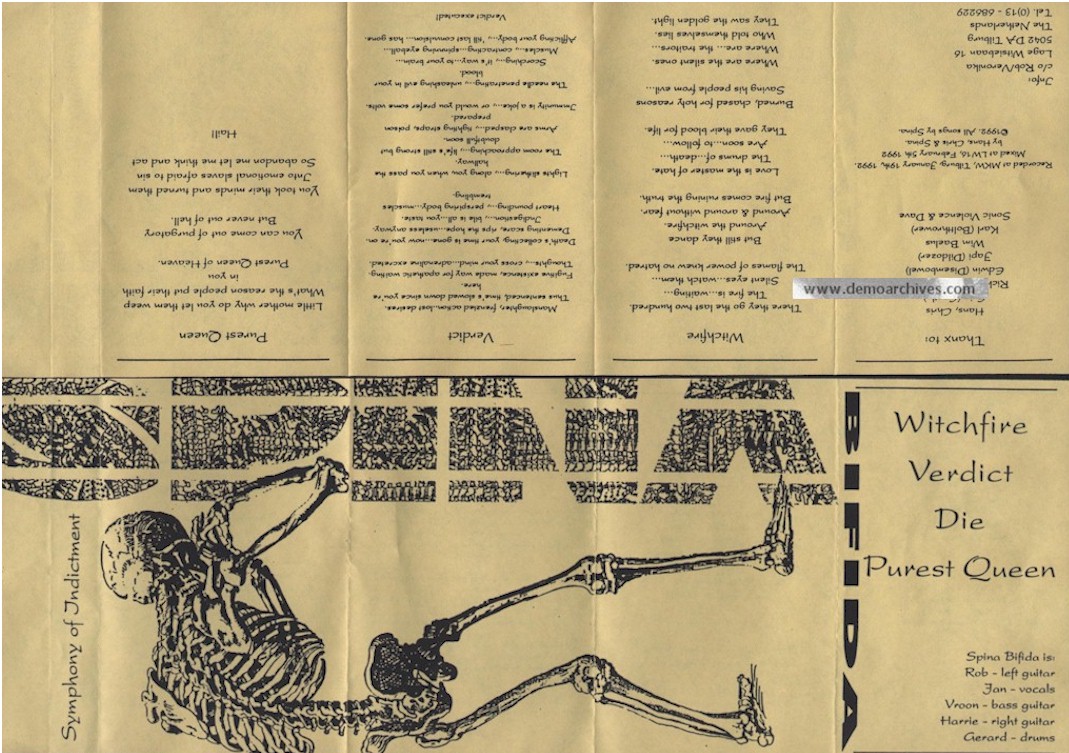 SPINA
BIFIDA
Symphony of Indictment
Witchfire
Verdict
Die
Purest Queen
Spina Bifida is:
Rob - left guitar
Jan - vocals
Vroon - bass guitar
Harrie - right guitar
Gerard - drums
Thanx to:
Hans, Chris
Rick
Edwin (Disembowel)
Japi (Dildozer)
Wim Baelus
Karl (Boltthrower)
Sonic Violence & Dave
Recorded at MKW, Tilburg: January 19th, 1992.
Mixed at LW16, February 5th 1992
by Hans & Chris & Spina.
©1992. All songs by Spina.
Info:
c/o Rob/Veronika
Lage Witsiebaan 16
5042 DA Tilburg
The Netherlands
Tel. (0)13 - 686229
Witchfire
There they go the last two hundred.
The fire is...waiting...
Silent eyes...watch them...
The flames of power knew no hatred.
But still they dance
Around the witchfire.
Around & around without fear.
But fire comes ruining the truth.
Love is the master of hate.
The drums of...death...
Are soon...to follow...
They gave their blood for life.
Burned, chased for holy reasons
Saving his people from evil...
Where are the silent ones.
Where are... the traitors...
Who told themselves lies.
They saw the golden light.
Verdict
Manslaughter, frenzied action..lost desires.
Thus sentenced, time's slowed down since you're
here.
Fugitive existence, made way for apathetic waiting.
Thoughts..., cross your mind...adrenaline excreted.
Death's collecting, your time is gone...now you're on.
Dementing scare, rips the hope...useless anyway.
Indigestion..., bile is all...you taste.
Heart pounding..., perspiring body...muscles
trembling.
Lights slithering..., along you when you pass the
hallway.
The room approaching..., life's still strong but
doubtfull soon.
Arms are clasped..., fighting straps, poison
prepared.
Immunity is a joke..., or would you prefer some volts.
The needle penetrating..., unleashing evil in your
blood.
Scorching..., it's way...to your brain...
Muscles..., contracting...spinning eyeball...
Afflicting your body..., 'till last convulsion.... has gone.
Verdict executed!
Purest Queen
Little mother why do you let them weep
What's the reason people put their faith
in you
Purest Queen of Heaven.
You can come out of purgatory
But never out of hell.
You took their minds and turned them
Into emotional slaves afraid to sin
So abandon me let me think and act
Hail!
www.demoarchives.com